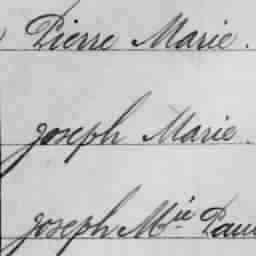 Pierre Marie.
Joseph Marie.
Joseph Mie